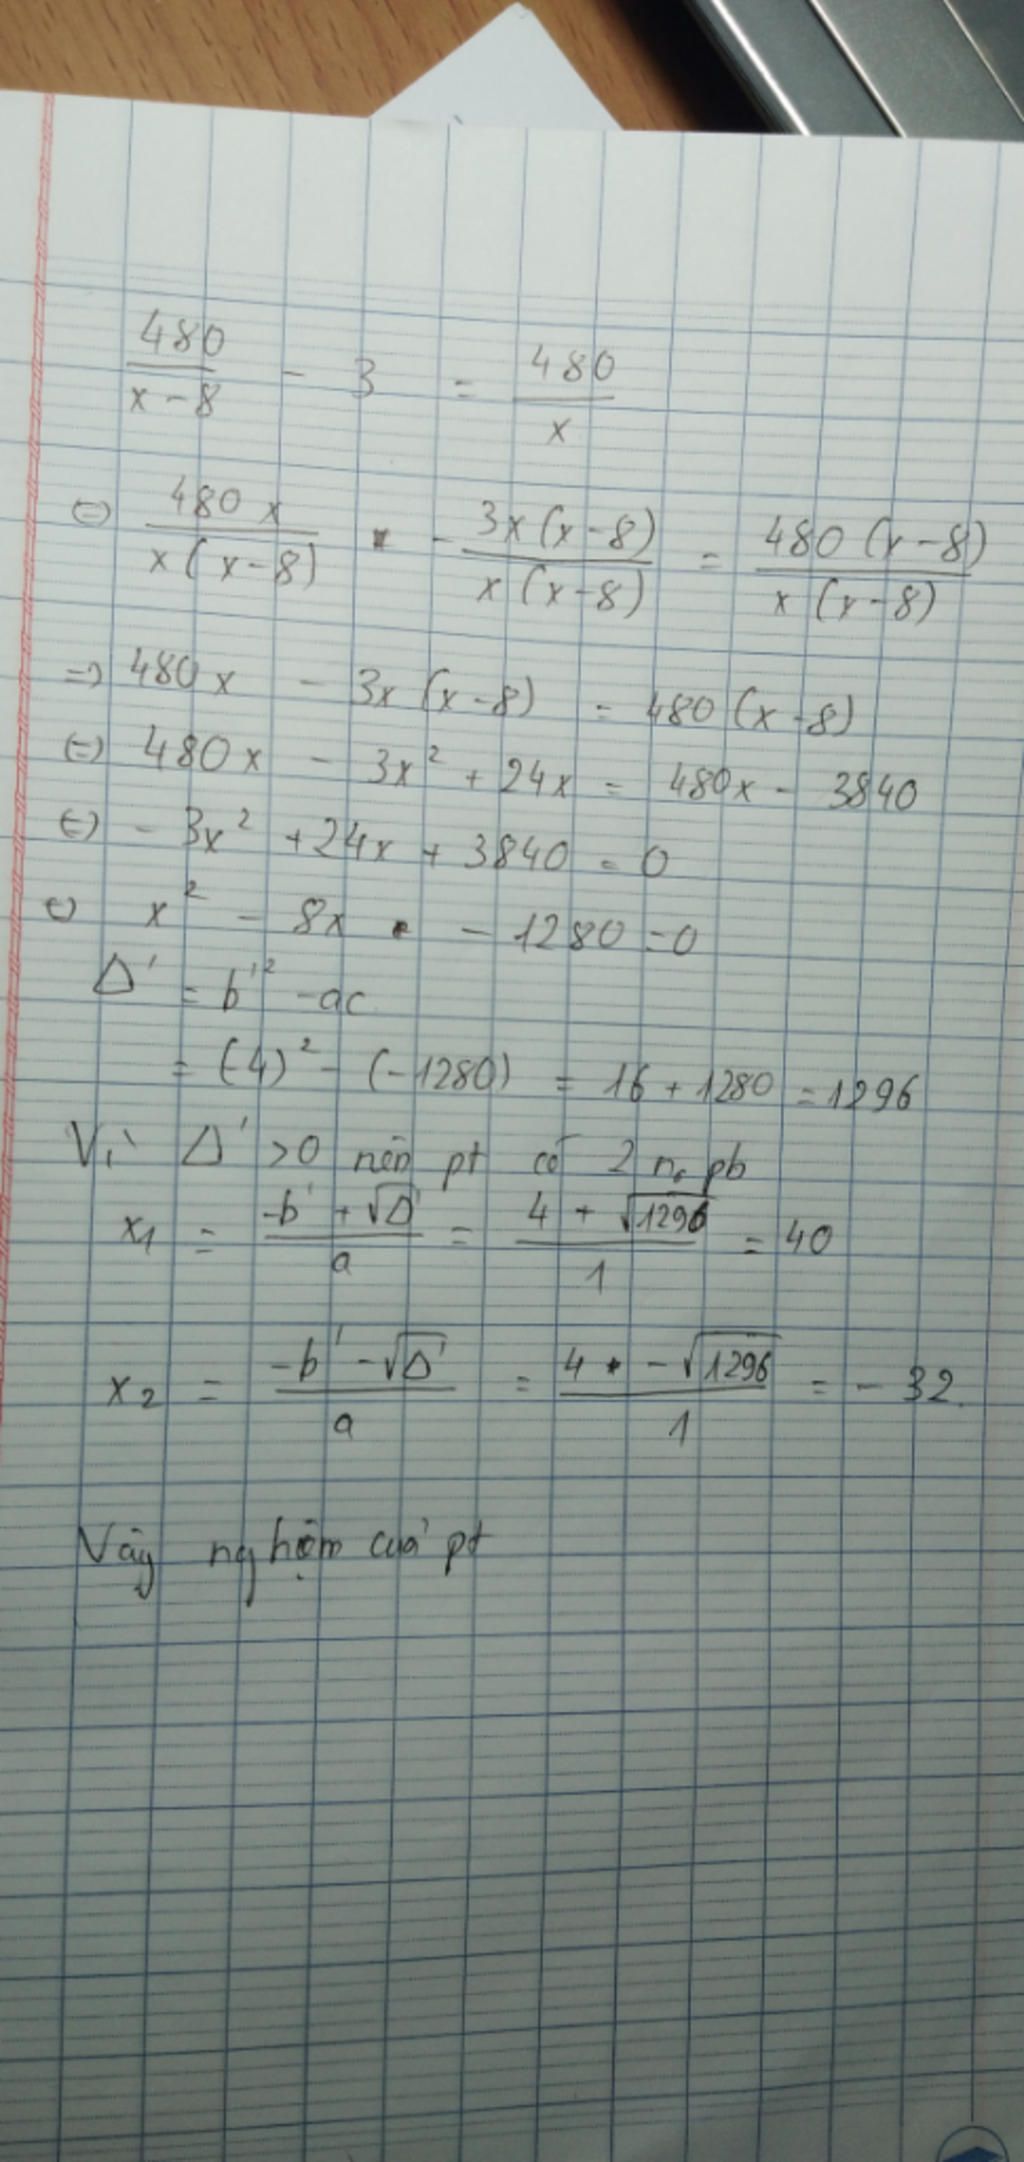 480/(x-8) - 3 = 480/x
⇔ 480x/(x(x-8)) - 3x(x-8)/(x(x-8)) = 480(x-8)/(x(x-8))
⇒ 480x - 3x(x-8) = 480(x-8)
⇔ 480x - 3x² + 24x = 480x - 3840
⇔ -3x² + 24x + 3840 = 0
⇔ x² - 8x - 1280 = 0
Δ' = b'² - ac
= (-4)² - (-1280) = 16 + 1280 = 1296
Vì Δ' > 0 nên pt có 2 n₀ pb
x₁ = (-b' + √Δ')/a = (4 + √1296)/1 = 40
x₂ = (-b' - √Δ')/a = (4 - √1296)/1 = -32.
Vậy nghiệm của pt